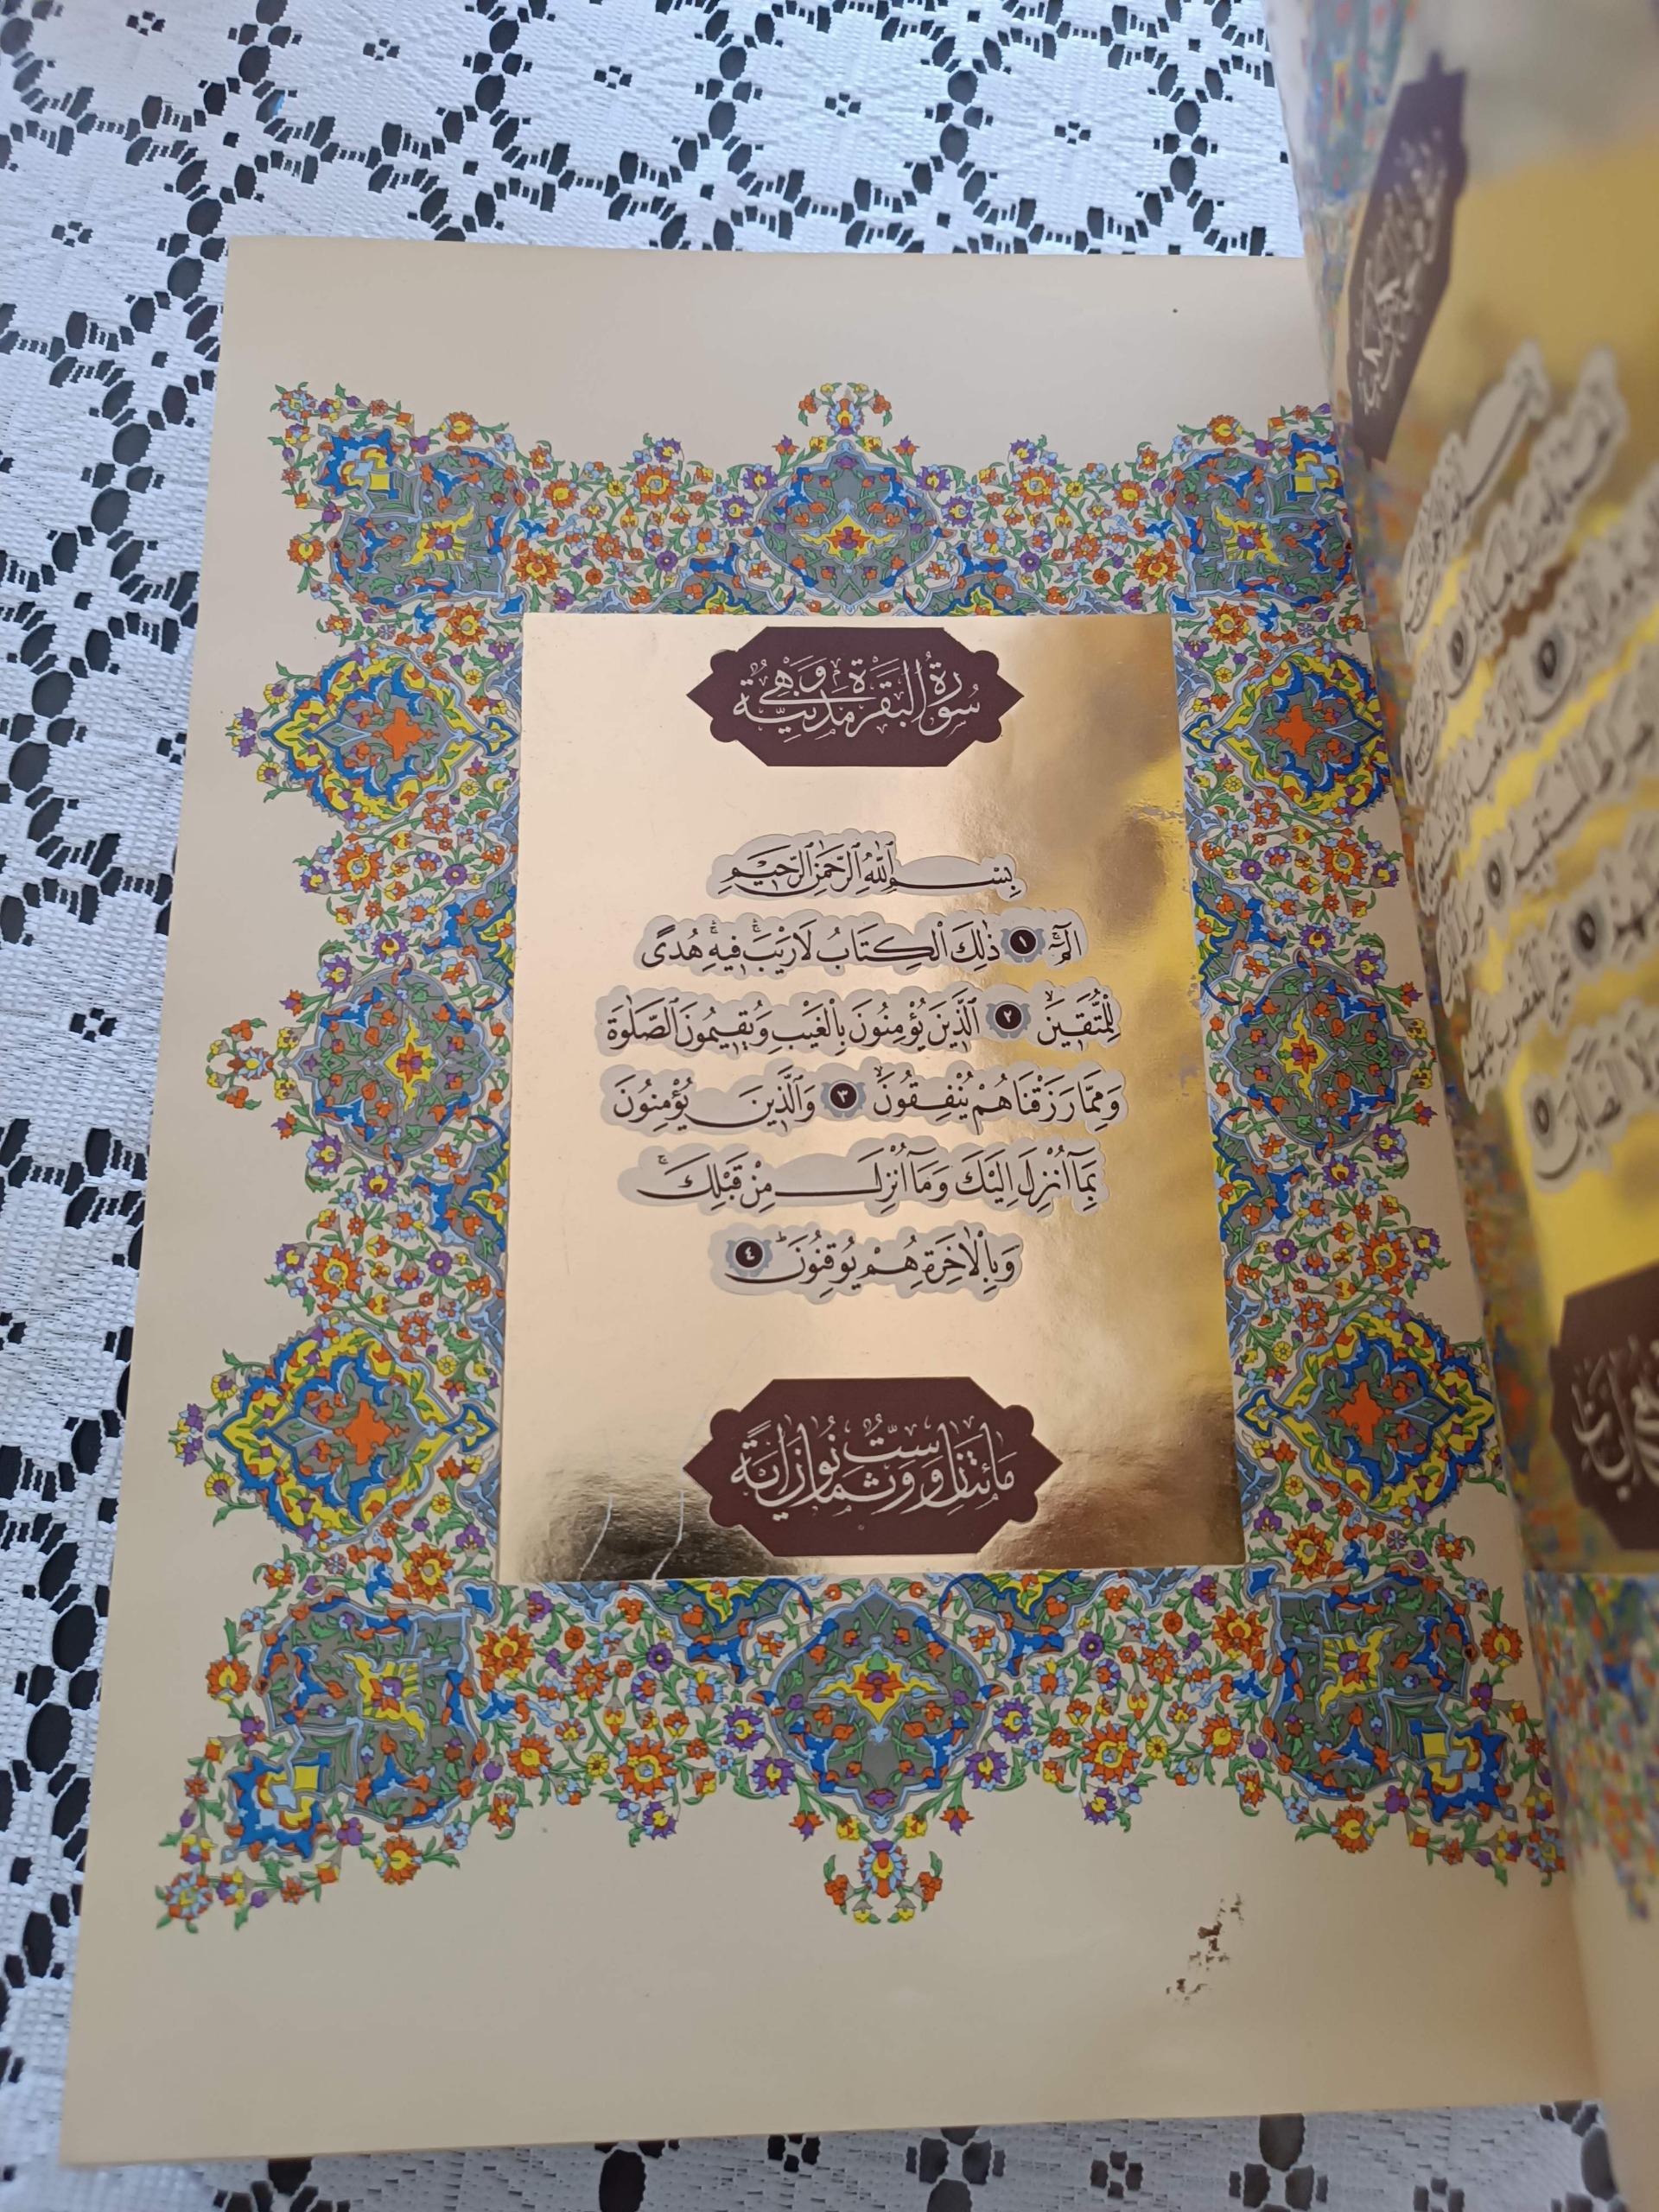 سُورَةُ الْبَقَرَةِ وَهِيَ مَدَنِيَّةٌ
بِسْمِ اللّٰهِ الرَّحْمٰنِ الرَّحِيمِ
الٓمٓ ۚ ﴿١﴾ ذٰلِكَ الْكِتَابُ لَا رَيْبَ ۚ فِيهِ ۚ هُدًى
لِلْمُتَّقِينَ ۙ ﴿٢﴾ اَلَّذِينَ يُؤْمِنُونَ بِالْغَيْبِ وَيُقِيمُونَ الصَّلٰوةَ
وَمِمَّا رَزَقْنَاهُمْ يُنْفِقُونَ ۙ ﴿٣﴾ وَالَّذِينَ يُؤْمِنُونَ
بِمَآ اُنْزِلَ اِلَيْكَ وَمَآ اُنْزِلَ مِنْ قَبْلِكَ ۚ
وَبِالْاٰخِرَةِ هُمْ يُوقِنُونَ ۜ ﴿٤﴾
مَائَتَانِ وَسِتٌّ وَثَمَانُونَ اٰيَةً
غَيْرِ الْمَغْضُوبِ عَلَيْهِمْ
وَلَا الضَّٓالِّينَ